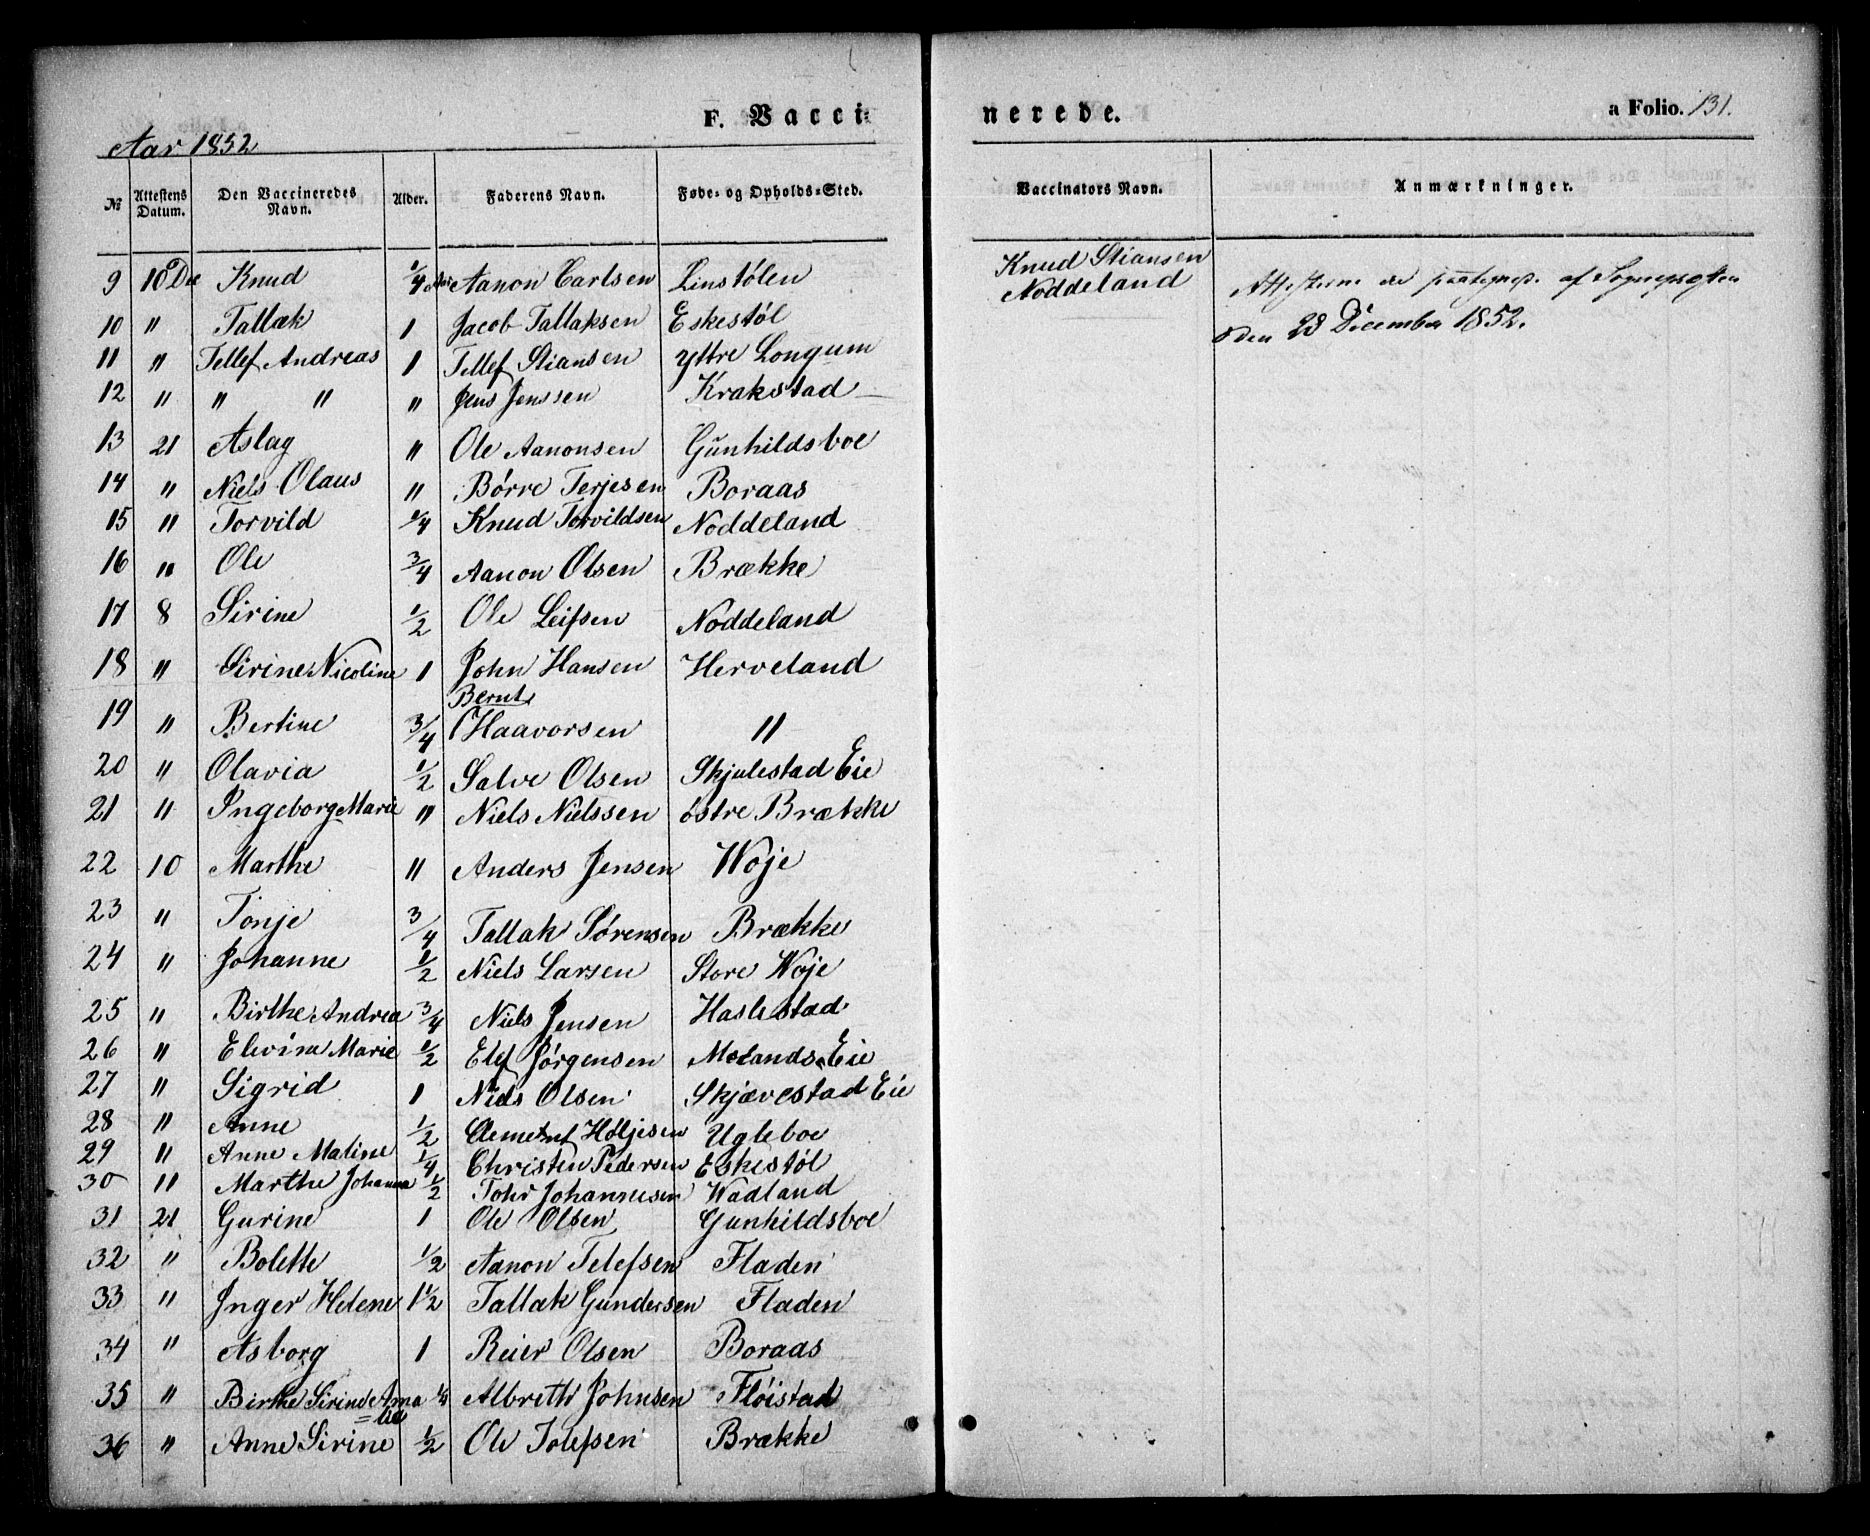 F. Vacci-
nerede.
a Folio. 131.
Aar 1852
№ Attestens Datum. Den Vaccineredes Navn. Alder. Faderens Navn. Føde- og Opholds-Sted. Vaccinators Navn. Anmærkninger.
9 10 Dec Knud 1/4 Aar Aanon Carlsen Linstølen Knud Stiansen Noddeland Attesterne er paategnede af Sognepræsten
10 " Tallak 1 Jacob Tallaksen Eskestøl den 28 December 1852.
11 " Tellef Andreas 1 Tellef Stiansen Yttre Longum
12 " " " " Jens Jenssen Krakstad
13 21 Aslag " Ole Aanonsen Gunhildsboe
14 " Niels Olaus " Børre Terjesen Boraas
15 " Torvild 1/4 Knud Torvildsen Noddeland
16 " Ole 3/4 Aanon Olsen Brække
17 8 Sirine 1/2 Ole Leifsen Noddeland
18 " Sirine Nicoline 1 John Hansen Herveland
19 " Bertine 3/4 Bernt Haavorsen "
20 " Olavia 1/2 Salve Olsen Skjulestad Eie
21 " Ingeborg Marie " Niels Nielssen østre Brække
22 10 Marthe " Anders Jensen Woje
23 " Tonje 3/4 Tallak Sørensen Brække
24 " Johanne 1/2 Niels Larsen Store Woje
25 " Birthe Andrea 3/4 Niels Jensen Haslestad
26 " Elevine Marie 1/2 Elef Jørgensen Molands Eie
27 " Sigrid 1 Niels Olsen Skjævestad Eie
28 " Anne 1/2 Clement Holjesen Ugleboe
29 " Anne Maline 1/4 Christen Pedersen Eskestøl
30 " Marthe Johanna 1/2 Tohr Johannesen Wadland
31 21 Gurine 1 Ole Olsen Gunhildsboe
32 " Bolette 1/2 Aanon Telefsen Fladen
33 " Inger Helene 1 1/2 Tallak Gundersen Fladen
34 " Asborg 1 Reier Olsen Boraas
35 " Birthe Sirine Ama=lia 1/4 Albreth Johnsen Fløistad
36 " Anne Sirine 1/2 Ole Tolefsen Brække